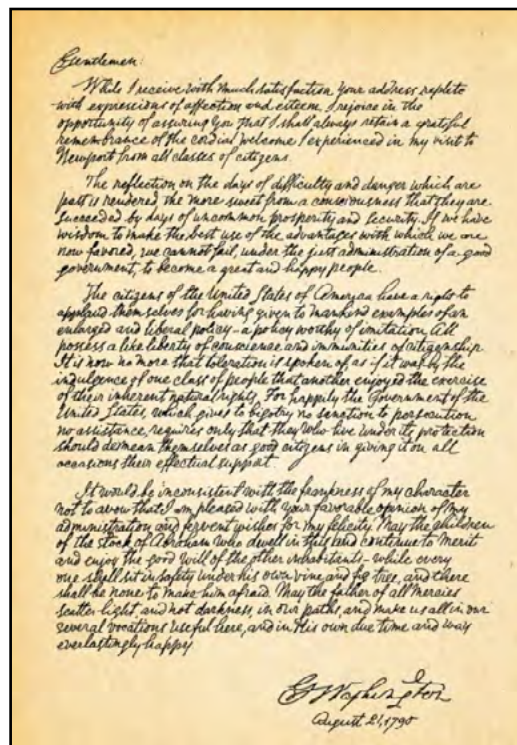 Gentlemen:
While I receive with much satisfaction your address replete
with expressions of affection and esteem, I rejoice in the
opportunity of assuring you that I shall always retain a grateful
remembrance of the cordial welcome I experienced in my visit to
Newport from all classes of citizens.
The reflection on the days of difficulty and danger which are
past is rendered the more sweet from a consciousness that they are
succeeded by days of uncommon prosperity and security. If we have
wisdom to make the best use of the advantages with which we are
now favored, we cannot fail, under the just administration of a good
government, to become a great and happy people.
The citizens of the United States of America have a right to
applaud themselves for having given to mankind examples of an
enlarged and liberal policy—a policy worthy of imitation. All
possess a like liberty of conscience and immunities of citizenship.
It is now no more that toleration is spoken of as if it was by the
indulgence of one class of people that another enjoyed the exercise
of their inherent natural rights. For happily the Government of the
United States, which gives to bigotry no sanction to persecution
no assistance, requires only that they who live under its protection
should demean themselves as good citizens in giving it on all
occasions their effectual support.
It would be inconsistent with the frankness of my character
not to avow that I am pleased with your favorable opinion of my
administration and fervent wishes for my felicity. May the children
of the stock of Abraham who dwell in this land continue to merit
and enjoy the good will of the other inhabitants—while every
one shall sit in safety under his own vine and fig tree, and there
shall be none to make him afraid. May the father of all mercies
scatter light and not darkness, in our paths, and make us all in our
several vocations useful here, and in His own due time and way
everlastingly happy.
G Washington
August 21, 1790